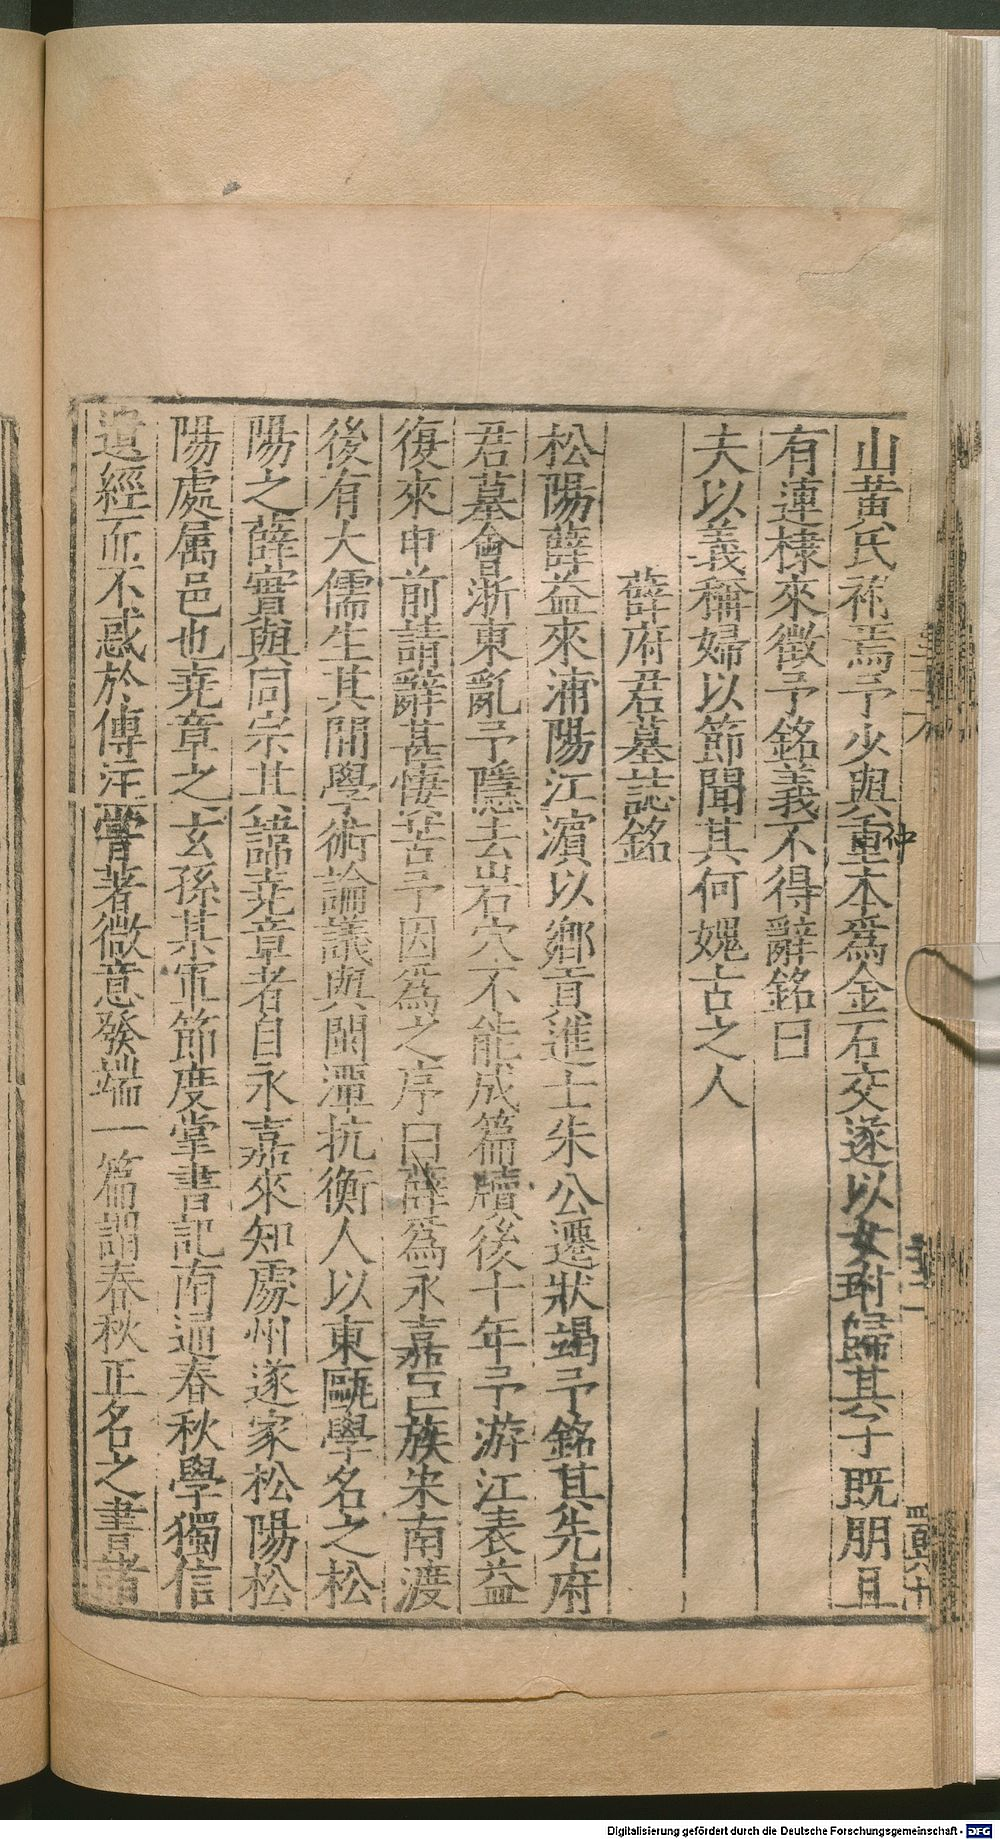 山黃氏祔焉予少與仲重本為金石交遂以女珘歸其子既朋且
有連棣來徵予銘義不得辭銘曰
夫以義稱婦以節聞其何媿古之人
薛府君墓誌銘
松陽薛益來浦陽江濵以鄉貢進士朱公遷狀竭予銘其先府
君墓會浙東亂予隱去岩穴不能成篇牘後十年予游江表益
復來申前請辭甚悽苦予因為之序曰薛為永嘉巨族宋南渡
後有大儒生其間學術論議與閩潭抗衡人以東甌學名之松
陽之薛實與同宗其諱堯章者自永嘉來知處州遂家松陽松
陽處属邑也堯章之玄孫某軍節度掌書記南通春秋學獨信
遺經而不惑於傳注嘗著微意發端一篇謂春秋正名之書諸
Digitalisierung gefördert durch die Deutsche Forschungsgemeinschaft - DFG